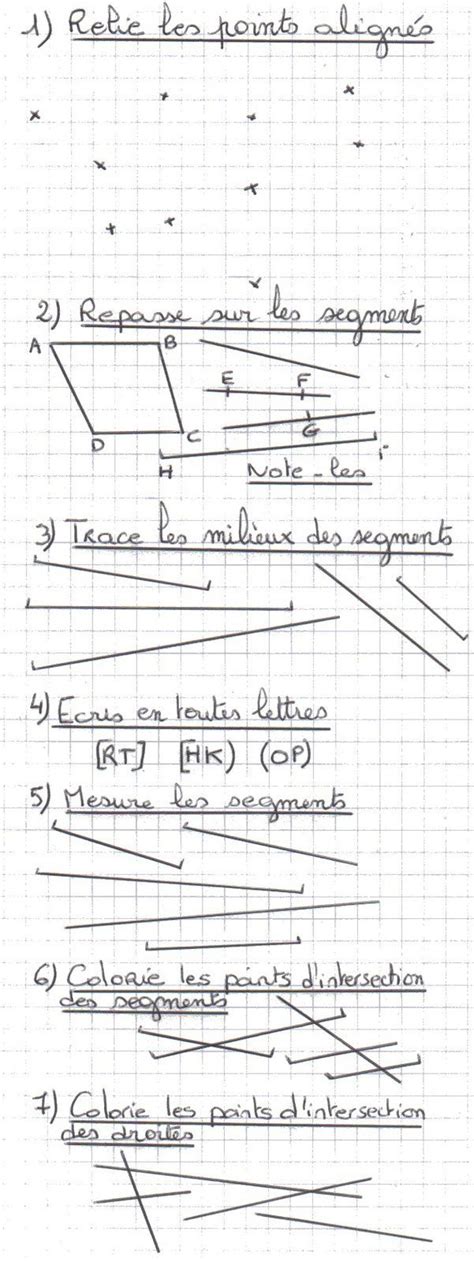 1) Relie les points alignés
2) Repasse sur les segments
A B
E F
D C G
H i
Note-les
3) Trace les milieux des segments
4) Ecris en toutes lettres
[RT] [HK) (OP)
5) Mesure les segments
6) Colorie les points d'intersection
des segments
7) Colorie les points d'intersection
des droites